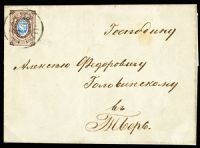 Господину
Алексѣю Ѳедоровичу
Головинскому
въ
Тверь.